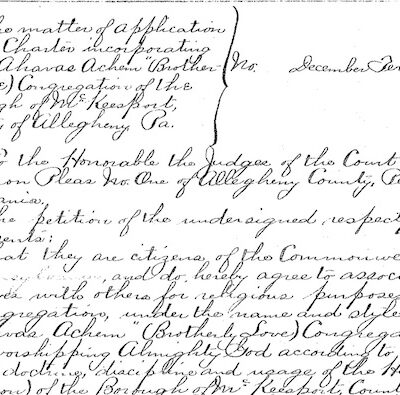 he matter of application
Charter incorporating
Ahavas Achem" (Brother-
e) Congregation of the
gh of McKeesport,
of Allegheny Pa.
No. December Ter
o the Honorable the Judges of the Court
on Pleas No. One of Allegheny County, Pe
ania,
he petition of the undersigned, respect
ents:
at they are citizens of the Commonwe
and do hereby agree to assoc
ves with others for religious purposes
gregation, under the name and style
vas Achem" (Brotherly Love) Congrega
orshipping Almighty God according to
doctrine, discipline and usage of the H
on) of the Borough of McKeesport, Coun